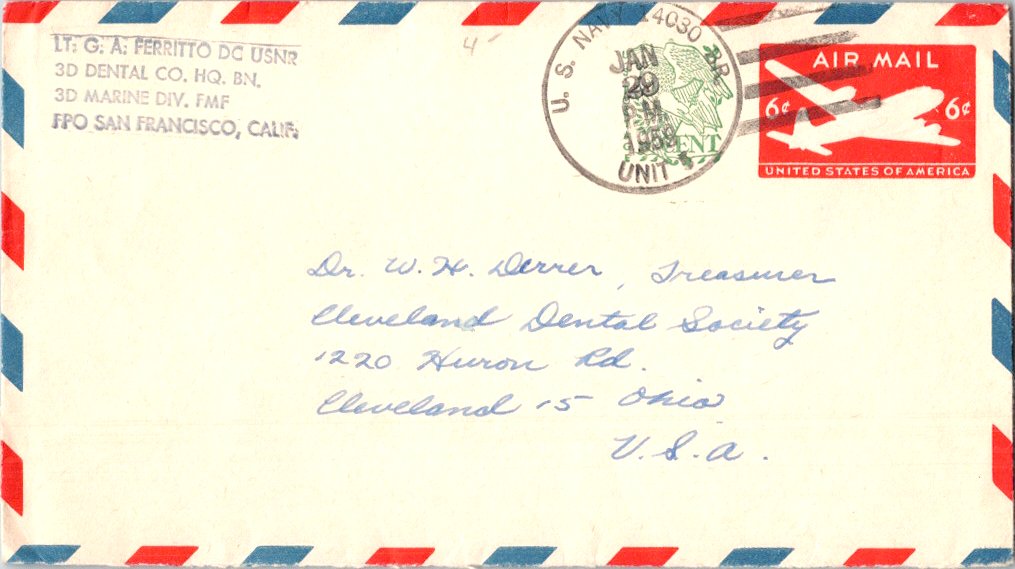 LT. G. A. FERRITTO DC USNR
3D DENTAL CO. HQ. BN.
3D MARINE DIV. FMF
FPO SAN FRANCISCO, CALIF.
4-
U. S. NAVY 14030 BR.
JAN
29
P.M.
1959
UNIT 5
CENT
AIR MAIL
6¢ 6¢
UNITED STATES OF AMERICA
Dr. W. H. Derrer, Treasurer
Cleveland Dental Society
1220 Huron Rd.
Cleveland 15 Ohio
U.S.A.